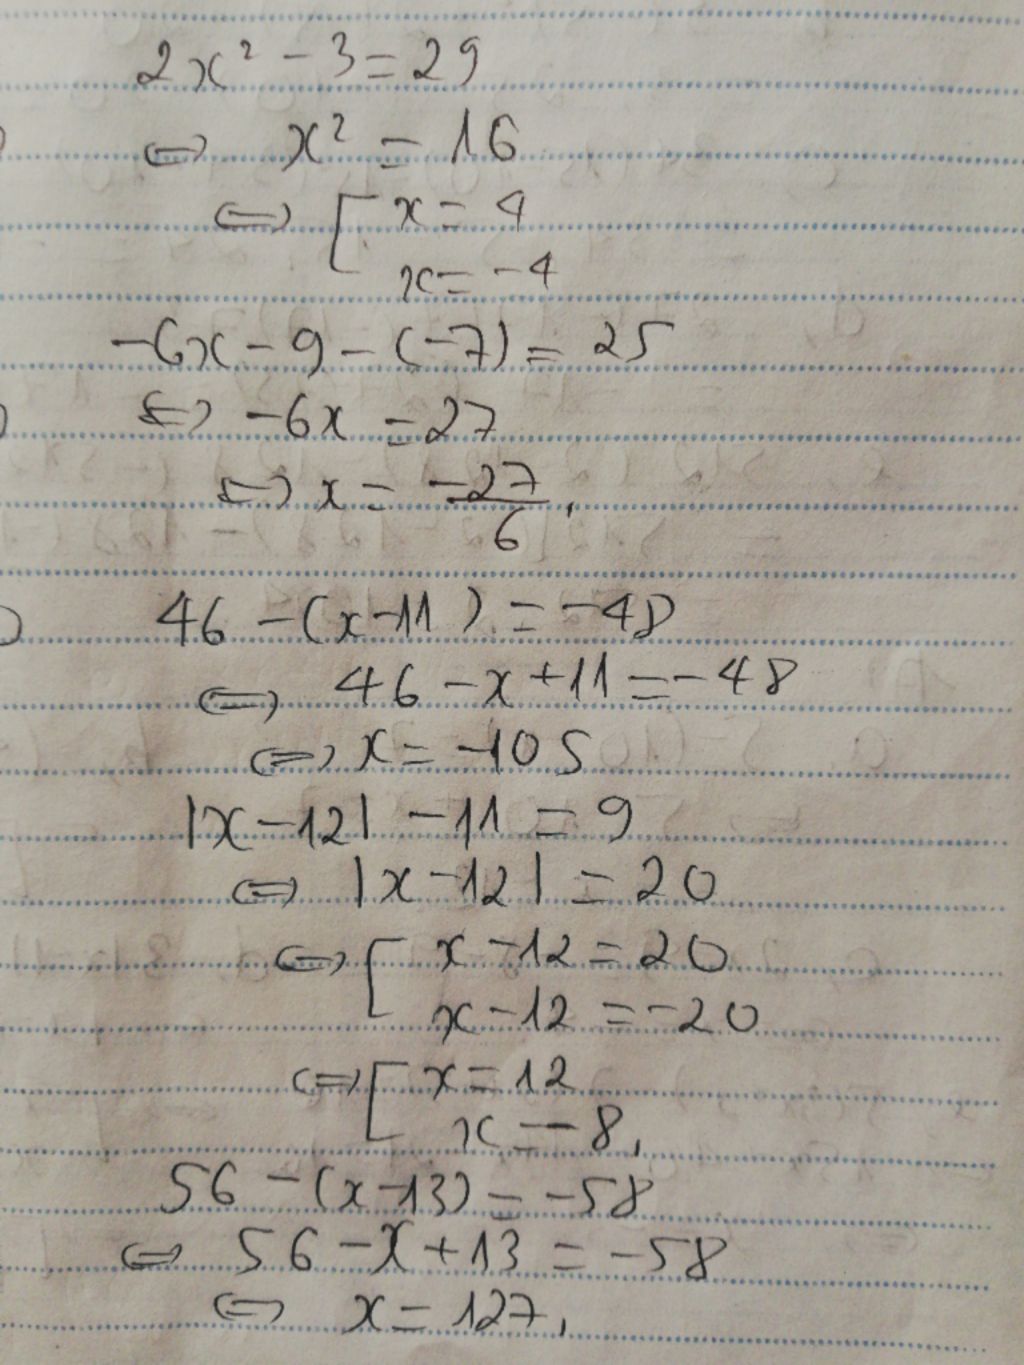 2x² - 3 = 29
⇔ x² = 16
⇔ [ x = 4
x = -4
-6x - 9 - (-7) = 25
⇔ -6x = 27
⇔ x = -27/6,
46 - (x - 11) = -48
⇔ 46 - x + 11 = -48
⇔ x = -105
|x - 12| - 11 = 9
⇔ |x - 12| = 20
⇔ [ x - 12 = 20
x - 12 = -20
⇔ [ x = 12
x = -8,
56 - (x - 13) = -58
⇔ 56 - x + 13 = -58
⇔ x = 127,